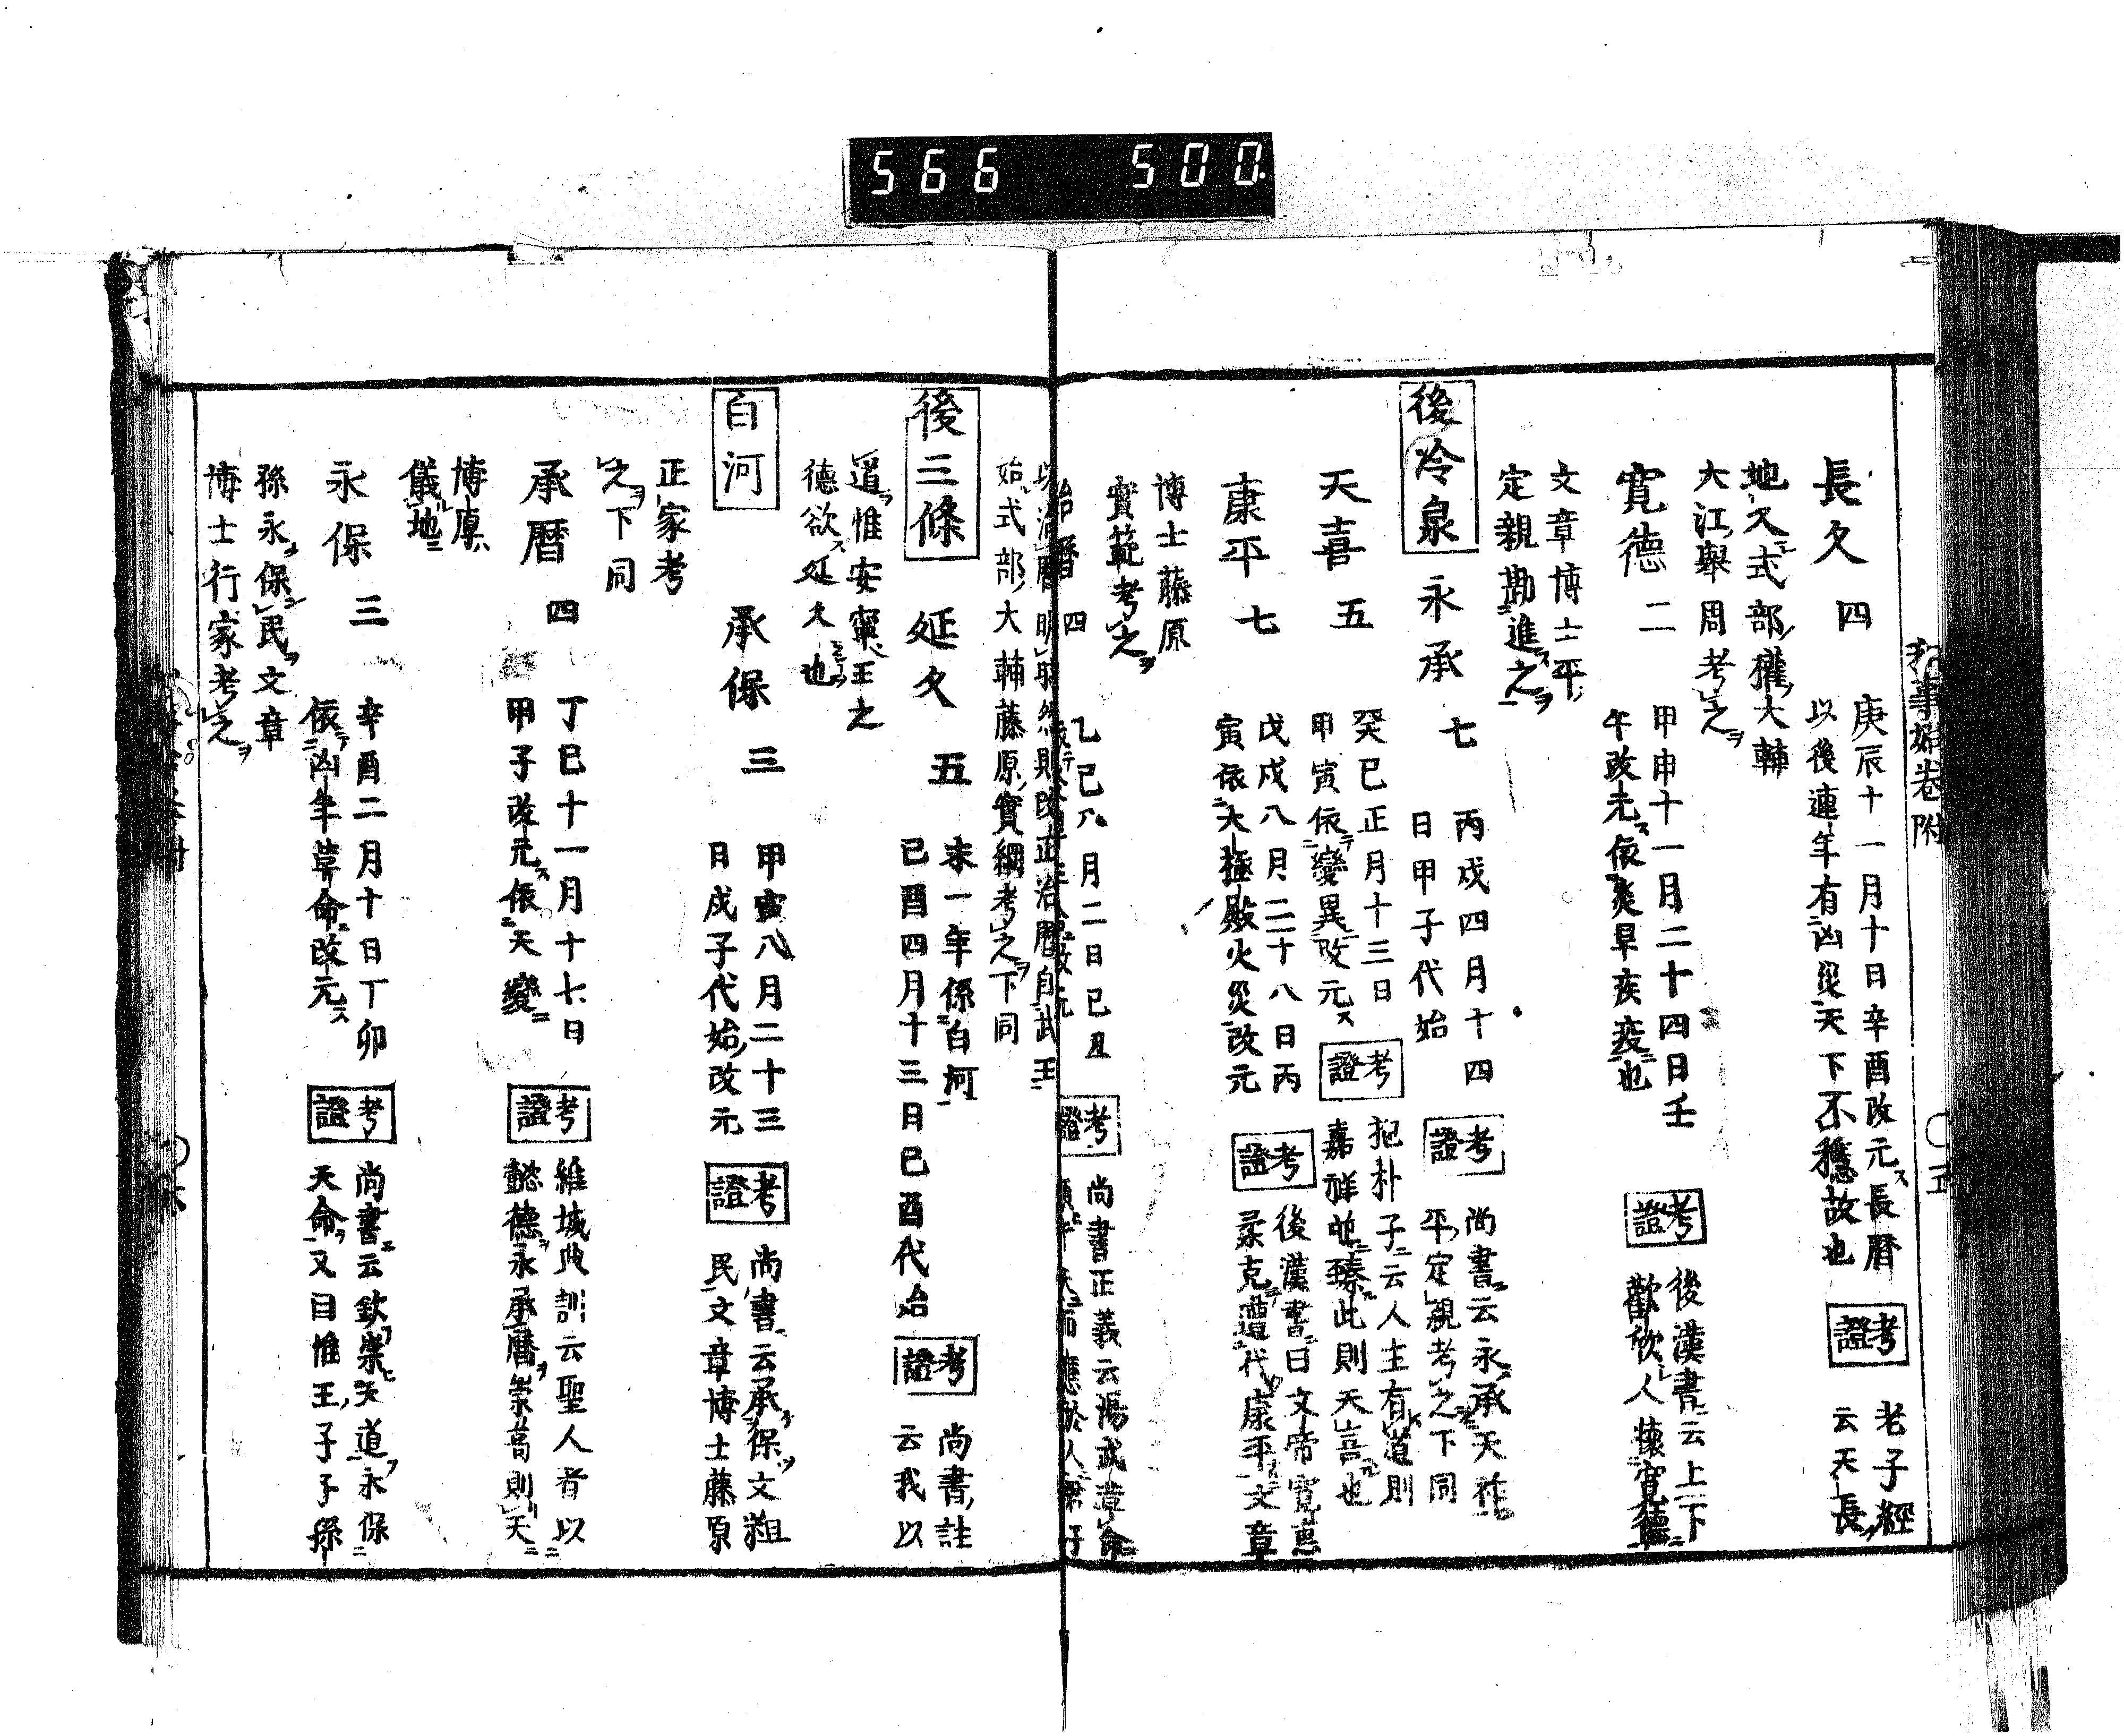 566 500.
和事始卷附
長久 四
庚辰十一月十日辛酉改元ス長曆
以後連年有凶災天下不穩故也
考證
老子經
云天長
地久式部權大輔
大江擧周考之ヲ
寛德 二
甲申十一月二十四日壬
午改元ス依炎旱疾疫也
考證
後漢書云上下
歡欣人懷寛德
文章博士平
定親勘進之ヲ
後冷泉
永承 七
丙戌四月十四
日甲子代始
考證
尚書云永承天祚
平定親考之下同
天喜 五
癸巳正月十三日
甲寅依變異改元ス
考證
抱朴子云人主有道則
嘉祥並臻此則天喜也
康平 七
戊戌八月二十八日丙
寅依大極殿火災改元
考證
後漢書曰文帝寛惠
柔克遭代康平文章
博士藤原
實範考之ヲ
治曆 四
乙巳八月二日己丑
考證
尚書正義云湯武革命
順于天而應於人
以治曆明時然則改正治曆自武王
始式部大輔藤原實綱考之下同
後三條
延久 五
末一年係白河
己酉四月十三日己酉代始
考證
尚書註
云我以
道惟安寧王之
德欲延久也
白河
承保 三
甲寅八月二十三
日戊子代始改元
考證
尚書云承保文祖
民文章博士藤原
正家考
之下同
承曆 四
丁巳十一月十七日
甲子改元ス依天變
考證
維城典訓云聖人者以
懿德永承曆崇高則天
博厚
儀地
永保 三
辛酉二月十日丁卯
依凶年革命改元ス
考證
尚書云欽崇天道永保
天命又曰惟王子子孫
孫永保民文章
博士行家考之ヲ